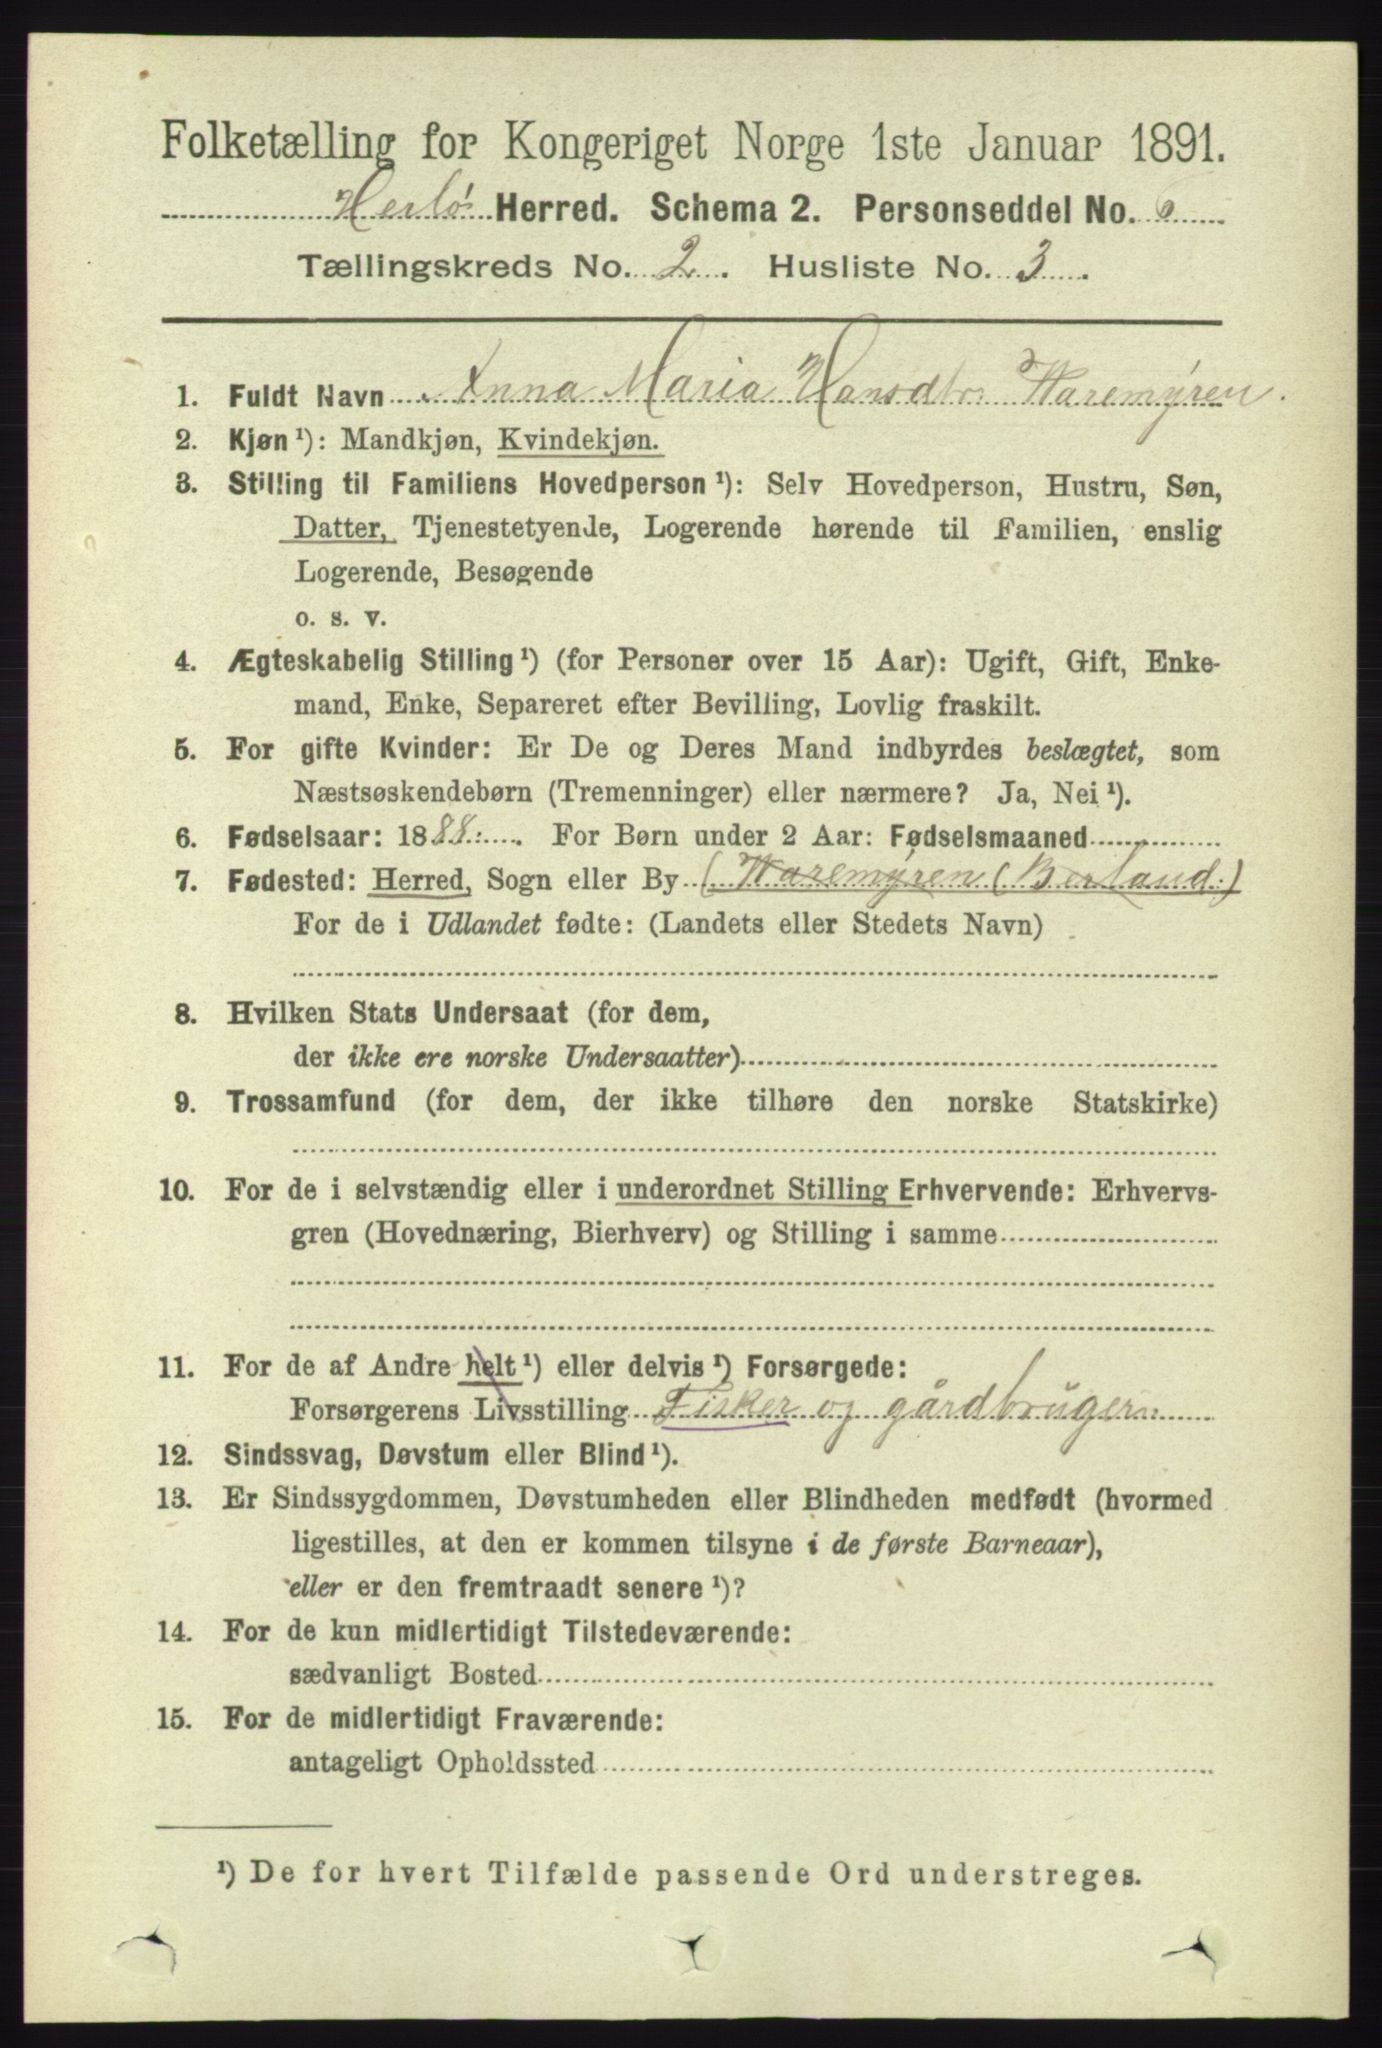 Folketælling for Kongeriget Norge 1ste Januar 1891.
Herlø Herred. Schema 2. Personseddel No. 6
Tællingskreds No. 2. Husliste No. 3.
1. Fuldt Navn Anna Maria Hansdtr Waremyren.
2. Kjøn¹): Mandkjøn, Kvindekjøn.
3. Stilling til Familiens Hovedperson¹): Selv Hovedperson, Hustru, Søn,
Datter, Tjenestetyende, Logerende hørende til Familien, enslig
Logerende, Besøgende
o. s. v.
4. Ægteskabelig Stilling¹) (for Personer over 15 Aar): Ugift, Gift, Enke-
mand, Enke, Separeret efter Bevilling, Lovlig fraskilt.
5. For gifte Kvinder: Er De og Deres Mand indbyrdes beslægtet, som
Næstsøskendebørn (Tremenninger) eller nærmere? Ja, Nei¹).
6. Fødselsaar: 1888. For Børn under 2 Aar: Fødselsmaaned
7. Fødested: Herred, Sogn eller By (Waremyren (Berland.)
For de i Udlandet fødte: (Landets eller Stedets Navn)
8. Hvilken Stats Undersaat (for dem,
der ikke ere norske Undersaatter)
9. Trossamfund (for dem, der ikke tilhøre den norske Statskirke)
10. For de i selvstændig eller i underordnet Stilling Erhvervende: Erhvervs-
gren (Hovednæring, Bierhverv) og Stilling i samme
11. For de af Andre helt¹) eller delvis¹) Forsørgede:
Forsørgerens Livsstilling Fisker og gårdbruger
12. Sindssvag, Døvstum eller Blind¹).
13. Er Sindssygdommen, Døvstumheden eller Blindheden medfødt (hvormed
ligestilles, at den er kommen tilsyne i de første Barneaar),
eller er den fremtraadt senere¹)?
14. For de kun midlertidigt Tilstedeværende:
sædvanligt Bosted
15. For de midlertidigt Fraværende:
antageligt Opholdssted
¹) De for hvert Tilfælde passende Ord understreges.